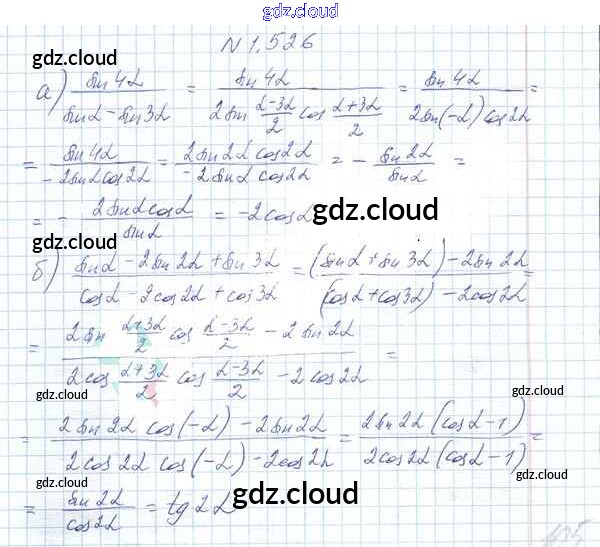 gdz.cloud
N 1.526
gdz.cloud gdz.cloud
а) sin 4α / (sin α – sin 3α) = sin 4α / (2 sin (α–3α)/2 cos (α+3α)/2) = sin 4α / (2 sin(–α) cos 2α) =
= sin 4α / (–2 sin α cos 2α) = 2 sin 2α cos 2α / (–2 sin α cos 2α) = – sin 2α / sin α =
= – 2 sin α cos α / sin α = –2 cos α
gdz.cloud
gdz.cloud gdz.cloud
б) (sin α – 2 sin 2α + sin 3α) / (cos α – 2 cos 2α + cos 3α) = ((sin α + sin 3α) – 2 sin 2α) / ((cos α + cos 3α) – 2 cos 2α) =
= (2 sin (α+3α)/2 cos (α–3α)/2 – 2 sin 2α) / (2 cos (α+3α)/2 cos (α–3α)/2 – 2 cos 2α) =
gdz.cloud gdz.cloud
= (2 sin 2α cos(–α) – 2 sin 2α) / (2 cos 2α cos(–α) – 2 cos 2α) = 2 sin 2α (cos α – 1) / (2 cos 2α (cos α – 1)) =
gdz.cloud gdz.cloud
= sin 2α / cos 2α = tg 2α
gdz.cloud